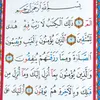 بِسْمِ اللَّهِ الرَّحْمَٰنِ الرَّحِيمِ
الٓمٓ ذَٰلِكَ الْكِتَابُ لَا رَيْبَ فِيهِ هُدًى
لِلْمُتَّقِينَ الَّذِينَ يُؤْمِنُونَ بِالْغَيْبِ وَيُقِيمُونَ
الصَّلَاةَ وَمِمَّا رَزَقْنَاهُمْ يُنْفِقُونَ وَالَّذِينَ
يُؤْمِنُونَ بِمَا أُنْزِلَ إِلَيْكَ وَمَا أُنْزِلَ مِنْ
قَبْلِكَ وَبِالْآخِرَةِ هُمْ يُوقِنُونَ